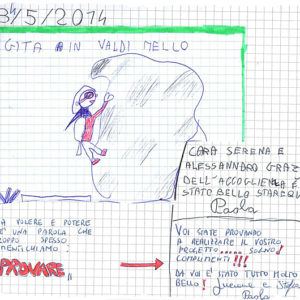 /5/2014
GITA IN VALDIMELLO
CARA SERENA E
ALESSANDRO GRAZ
DELL'ACCOGLIENZA È
STATO BELLO STARE
Paola
A VOLERE E POTERE
È UNA PAROLA CHE
TROPPO SPESSO
MENTICHIAMO:
PROVARE
VOI STATE PROVANDO
A REALIZZARE IL VOSTRO
PROGETTO..... SOGNO!
COMPLIMENTI!!!!
DA VOI È STATO TUTTO MOLTO
BELLO!
Paola